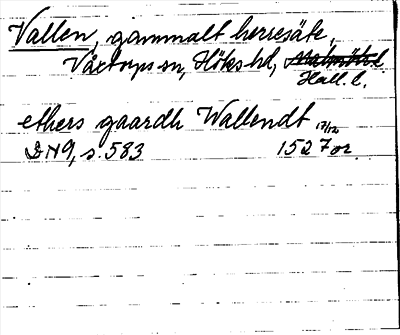 Vallen, gammalt herresäte,
Våxtorps sn, Höks hd, Malmöh. l.
Hall. l.
ethers gaardh Wallendt 17/12
DN9, s. 583 1527 or.